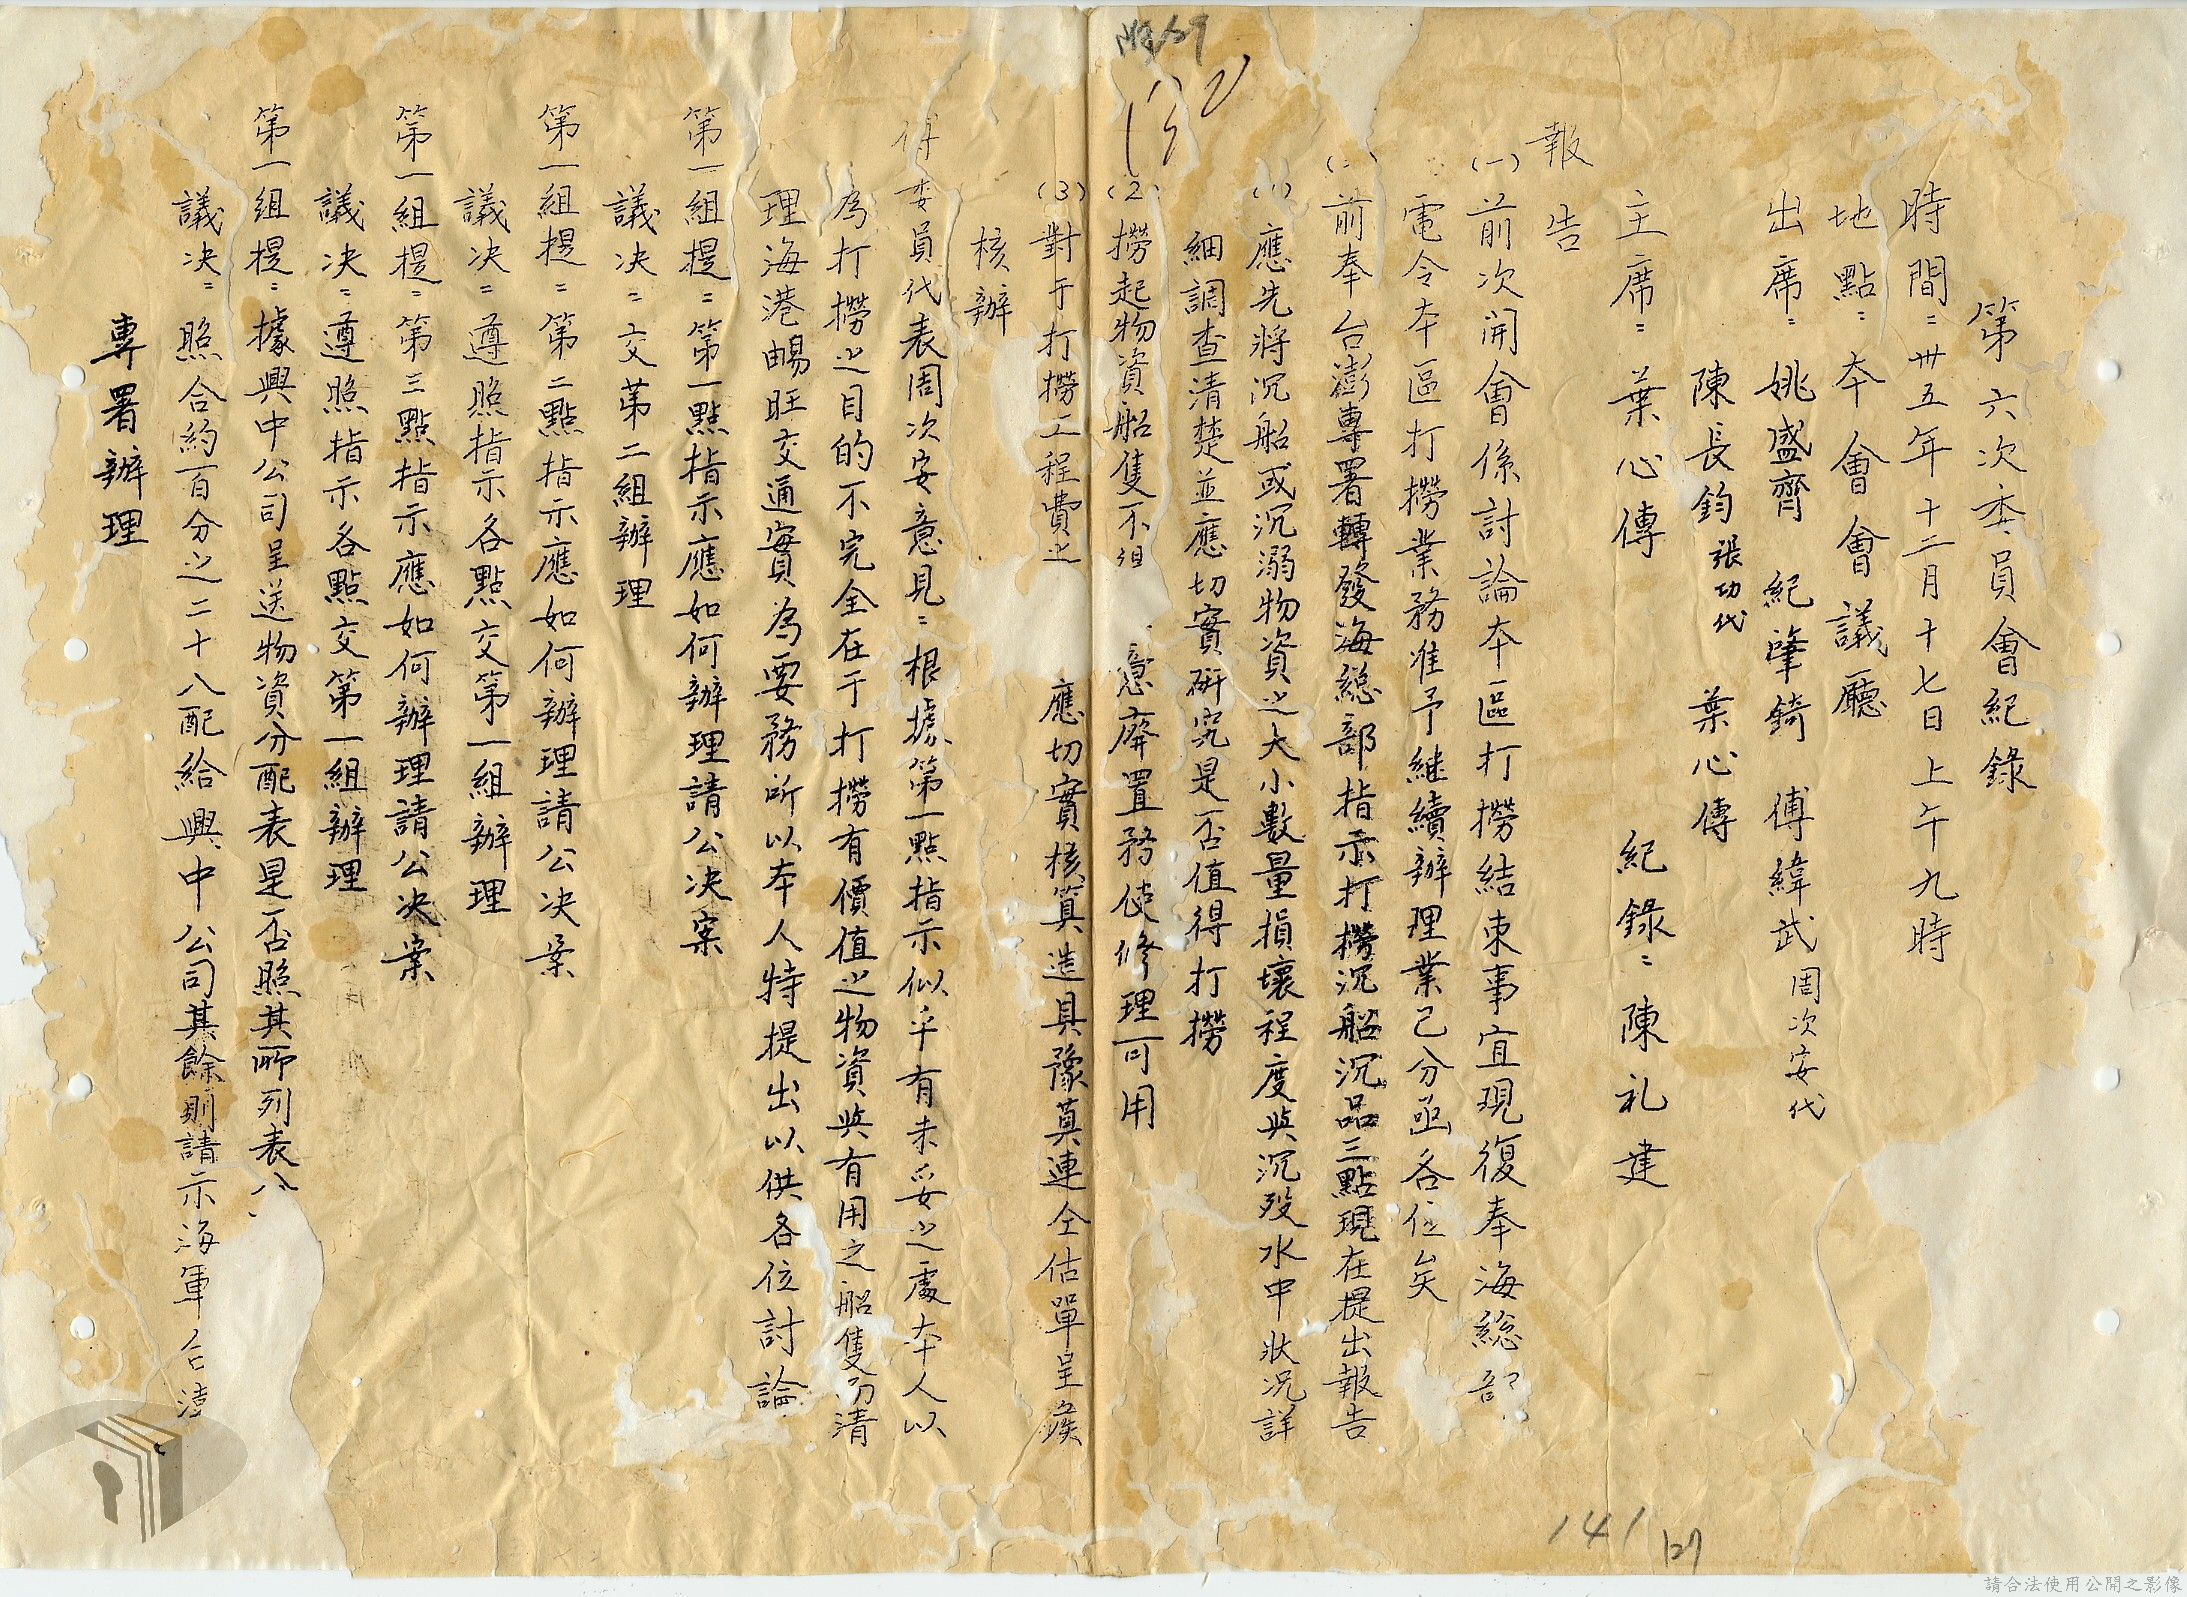 第六次委員會紀錄
時間：卅五年十二月十七日上午九時
地點：本會會議廳
出席：姚盛齊 紀肇錡 傅緯武 周次安代
陳長鈞 張功代 葉心傳
主席：葉心傳 紀錄：陳礼建
報告
(一)前次開會係討論本區打撈結束事宜現復奉海総部
電令本區打撈業務准予継續辦理業已分函各位矣
(二)前奉台澎專署轉發海総部指示打撈沉船沉品三點現在提出報告
(1)應先將沉船或沉溺物資之大小數量損壞程度與沉歿水中狀況詳
細調查清楚並應切實研究是否值得打撈
(2)撈起物資船隻不 意廢置務使修理可用
(3)對于打撈工程費之 應切實核算造具豫算連仝估單呈候
核辦
傅委員代表周次安意見：根據第一點指示似乎有未妥之處本人以
為打撈之目的不完全在于打撈有價值之物資與有用之船隻而清
理海港暢旺交通實為要務所以本人特提出以供各位討論
第一組提：第一點指示應如何辦理請公決案
議決：交第二組辦理
第一組提：第二點指示應如何辦理請公決案
議決：遵照指示各點交第一組辦理
第一組提：第三點指示應如何辦理請公決案
議決：遵照指示各點交第一組辦理
第一組提：據興中公司呈送物資分配表是否照其所列表八
議決：照合約百分之二十八配給興中公司其餘則請示海軍台澎
專署辦理
141
121
請合法使用公開之影像